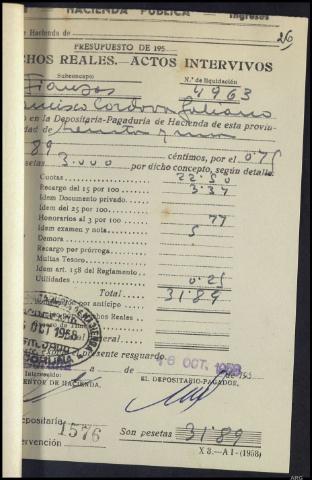 HACIENDA PÚBLICA Ingresos
e Hacienda de 26
PRESUPUESTO DE 195
CHOS REALES.—ACTOS INTERVIVOS
Subconcepto N.º de liquidación
Fianzas 4963
ancisco Cordova Juliano
o en la Depositaría-Pagaduría de Hacienda de esta provin-
dad de
89 céntimos, por el 0'75
setas 3.000 por dicho concepto, según detalle:
Cuotas 22'50
Recargo del 15 por 100 3'37
Idem Documento privado.
Idem del 25 por 100
Honorarios al 3 por 100 77
Idem examen y nota 5
Demora
Recargo por prórroga
Multas Tesoro
Idem art. 158 del Reglamento
Utilidades 0'25
Total 31'89
por anticipo
hos Reales
de Tim
neral
OCT 1958
CORUÑA
presente resguardo.
16 OCT. 1958
a de de 195
Intervenido:
ENTOR DE HACIENDA, EL DEPOSITARIO-PAGADOR,
epositaría
tervención 1576 Son pesetas 31'89
X 3.—A I-(1958)
ARG